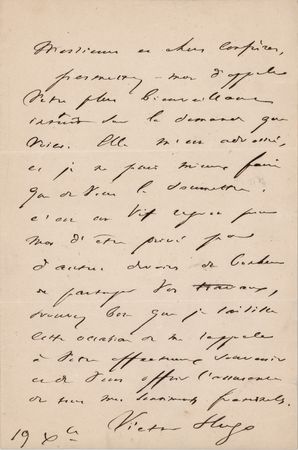 Messieurs et chers confrères,
permettez-moi d'appeler
votre plus bienveillante
sur la demande que
voici. Elle m'est adressée,
et je ne puis mieux faire
que de vous la soumettre.
c'est un vif regret pour
moi d'être privé par
d'autres devoirs de
de partager vos travaux,
trouvez bon que je
cette occasion de me rappeler
à votre affectueux souvenir
et de vous offrir l'assurance
de tous mes sentiments
Victor Hugo
19 Xbre